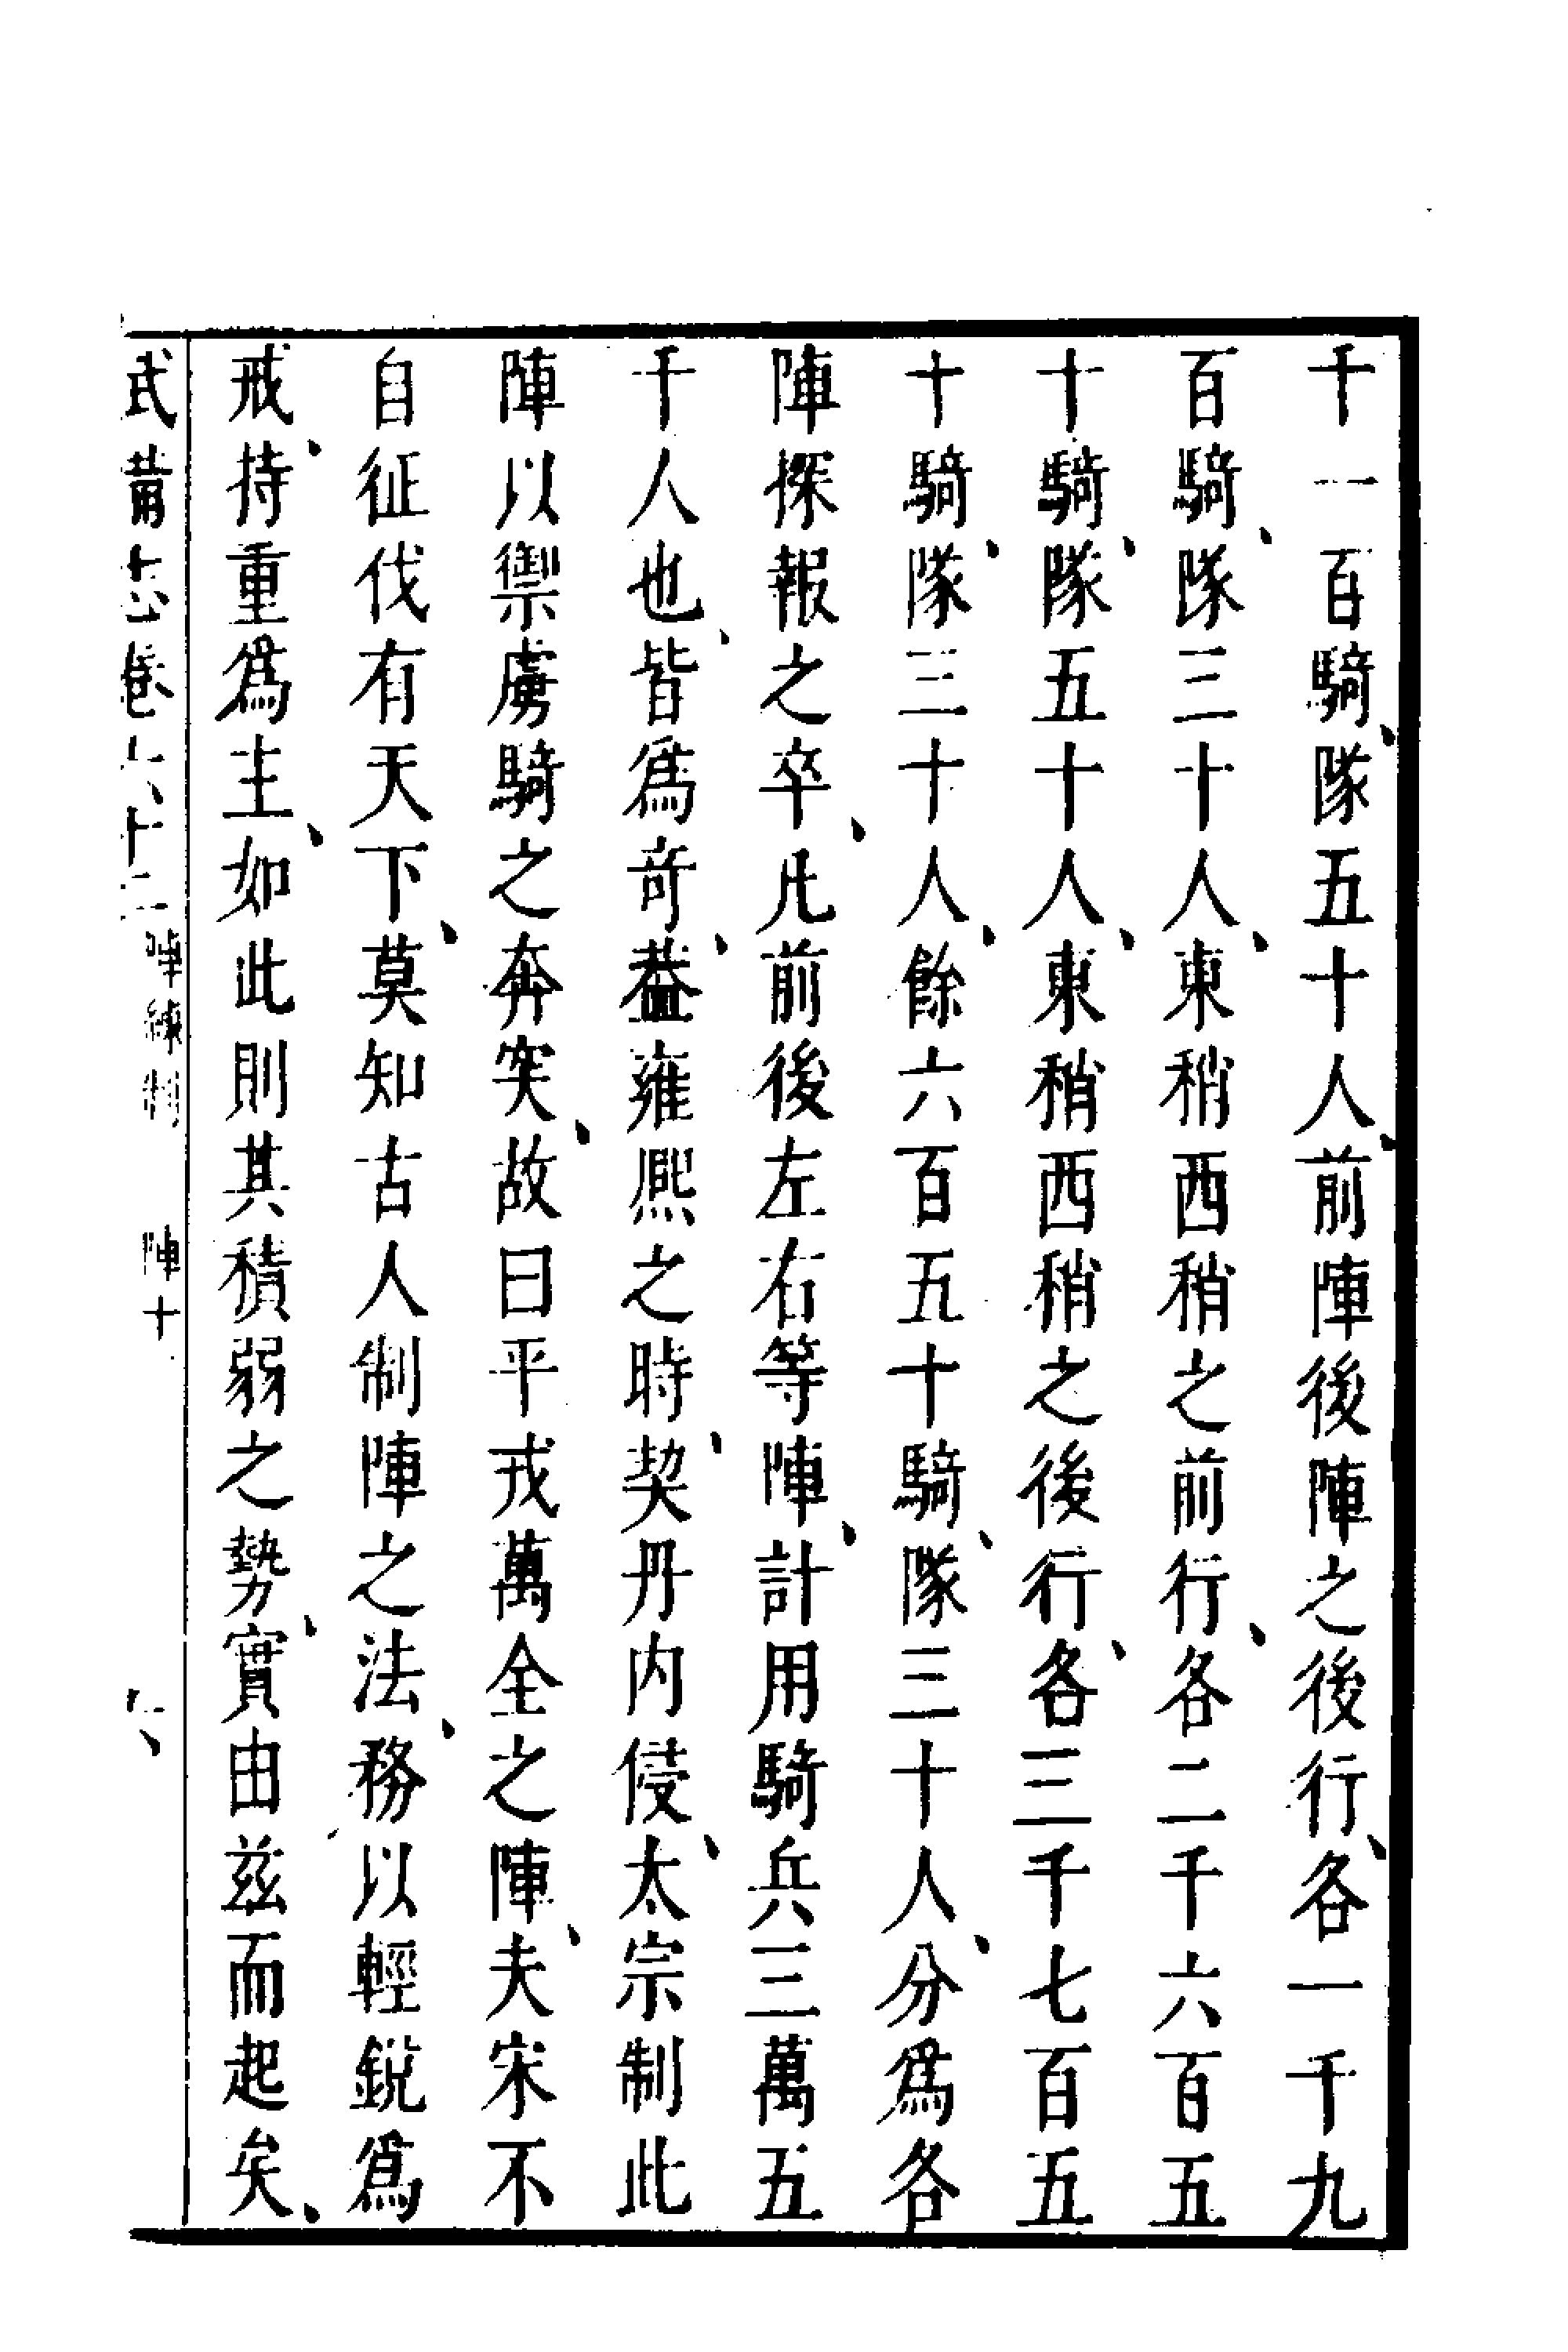 千一百騎、隊五十人、前陣後陣之後行、各一千九
百騎、隊三十人、東稍西稍之前行、各二千六百五
十騎、隊五十人、東稍西稍之後行、各三千七百五
十騎、隊三十人、餘六百五十騎、隊三十人、分爲各
陣探報之卒、凡前後左右等陣、計用騎兵三萬五
千人也、皆爲奇、葢雍熙之時、契丹内侵、太宗制此
陣以禦虜騎之奔突、故曰平戎萬全之陣、夫宋不
自征伐有天下、莫知古人制陣之法、務以輕銳爲
戒、持重爲主、如此則其積弱之勢、實由兹而起矣、
武備志卷六十二 陣練制 陣十